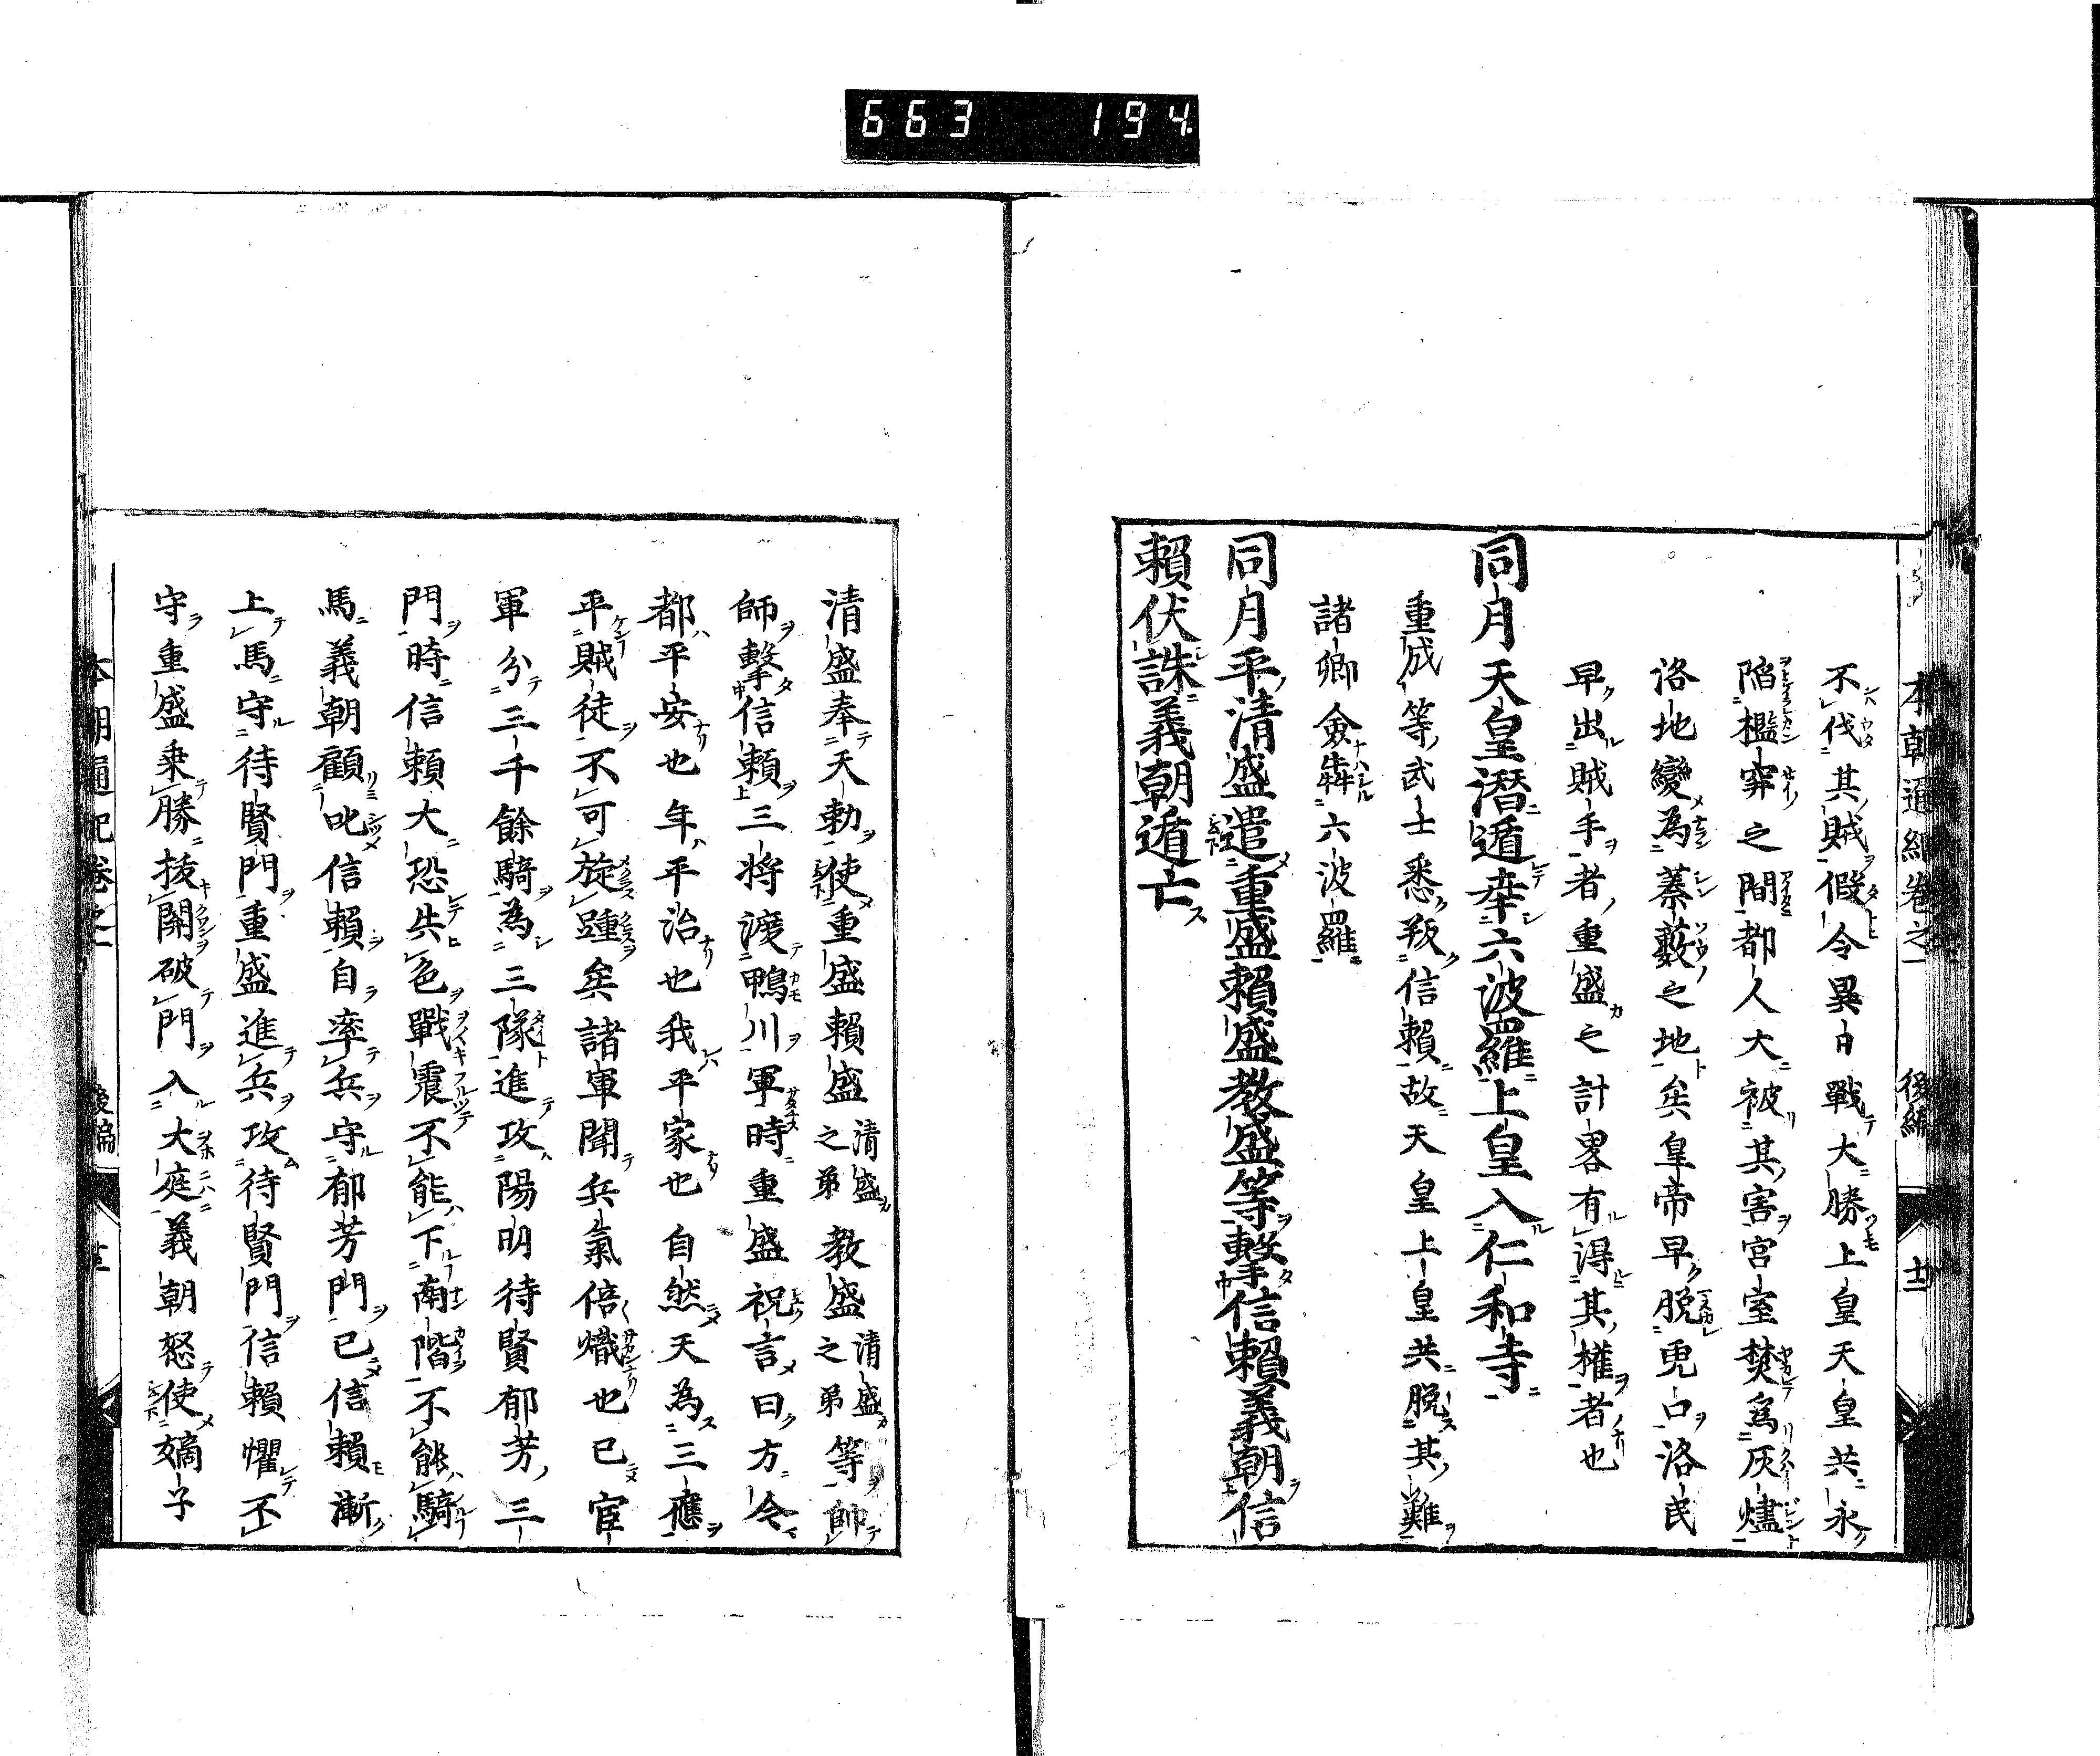 663 194
本朝通紀卷之一 後編 廿二
不伐其賊假令異日戰大勝上皇天皇共永
陷檻穽之間都人大被其害宮室焚爲灰燼
洛地變為蓁藪之地矣皇帝早脱兎口洛民
早出賊手者重盛之計畧有得其權者也
同月天皇潛遁幸六波羅上皇入仁和寺
重成等武士悉叛信賴故天皇上皇共脱其難
諸卿僉犇六波羅
同月平清盛遣重盛賴盛教盛等擊信賴義朝信
賴伏誅義朝遁亡
清盛奉天勅使重盛賴盛清盛之弟教盛清盛之弟等帥
師擊信賴三將渡鴨川軍時重盛祝言曰方今
都平安也年平治也我平家也自然天為三應
平賊徒不可旋踵矣諸軍聞兵氣倍熾也已官
軍分三千餘騎為三隊進攻陽明待賢郁芳三
門時信賴大恐失色戰震不能下南階不能騎
馬義朝顧叱信賴自率兵守郁芳門已信賴漸
上馬守待賢門重盛進兵攻待賢門信賴懼不
守重盛乗勝抜關破門入大庭義朝怒使嫡子
本朝通紀卷之一 後編